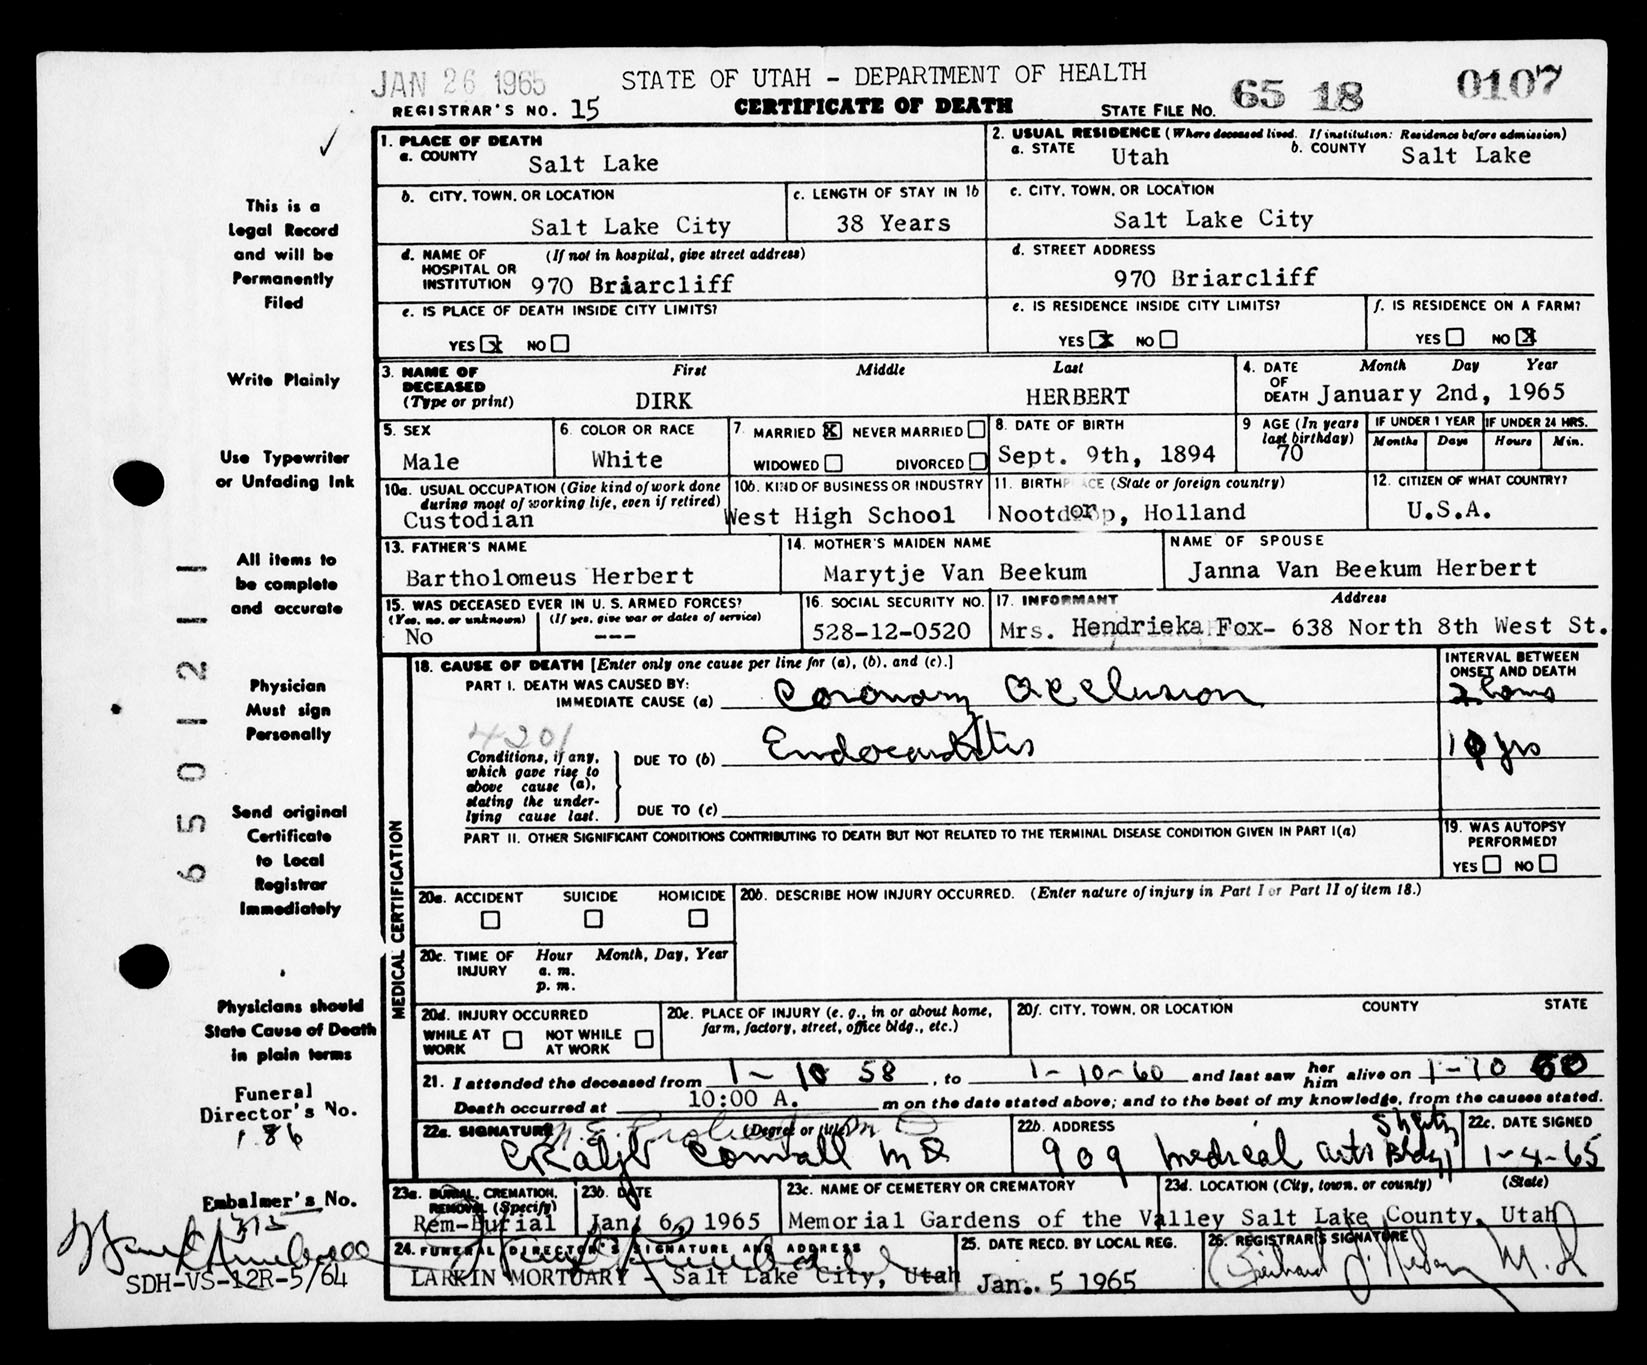 JAN 26 1965
STATE OF UTAH - DEPARTMENT OF HEALTH
65 18 0107
REGISTRAR'S NO. 15
CERTIFICATE OF DEATH
STATE FILE NO.
This is a
Legal Record
and will be
Permanently
Filed
Write Plainly
Use Typewriter
or Unfading Ink
All items to
be complete
and accurate
Physician
Must sign
Personally
Send original
Certificate
to Local
Registrar
Immediately
Physicians should
State Cause of Death
in plain terms
Funeral
Director's No.
186
Embalmer's No.
313
SDH-VS-12R-5/64
65012111
1. PLACE OF DEATH
a. COUNTY Salt Lake
2. USUAL RESIDENCE (Where deceased lived. If institution: Residence before admission)
a. STATE Utah b. COUNTY Salt Lake
b. CITY, TOWN, OR LOCATION Salt Lake City
c. LENGTH OF STAY IN 1b 38 Years
c. CITY, TOWN, OR LOCATION Salt Lake City
d. NAME OF HOSPITAL OR INSTITUTION (If not in hospital, give street address) 970 Briarcliff
d. STREET ADDRESS 970 Briarcliff
e. IS PLACE OF DEATH INSIDE CITY LIMITS?
YES X NO
e. IS RESIDENCE INSIDE CITY LIMITS?
YES X NO
f. IS RESIDENCE ON A FARM?
YES NO X
3. NAME OF DECEASED (Type or print) First Middle Last
DIRK HERBERT
4. DATE OF DEATH Month Day Year
January 2nd, 1965
5. SEX Male
6. COLOR OR RACE White
7. MARRIED X NEVER MARRIED
WIDOWED DIVORCED
8. DATE OF BIRTH Sept. 9th, 1894
9 AGE (In years last birthday) 70
IF UNDER 1 YEAR Months Days
IF UNDER 24 HRS. Hours Min.
10a. USUAL OCCUPATION (Give kind of work done during most of working life, even if retired) Custodian
10b. KIND OF BUSINESS OR INDUSTRY West High School
11. BIRTHPLACE (State or foreign country) Nootdorp, Holland
12. CITIZEN OF WHAT COUNTRY? U.S.A.
13. FATHER'S NAME Bartholomeus Herbert
14. MOTHER'S MAIDEN NAME Marytje Van Beekum
NAME OF SPOUSE Janna Van Beekum Herbert
15. WAS DECEASED EVER IN U.S. ARMED FORCES?
(Yes, no, or unknown) No (If yes, give war or dates of service) ---
16. SOCIAL SECURITY NO. 528-12-0520
17. INFORMANT Address
Mrs. Hendrieka Fox- 638 North 8th West St.
MEDICAL CERTIFICATION
18. CAUSE OF DEATH [Enter only one cause per line for (a), (b), and (c).]
INTERVAL BETWEEN ONSET AND DEATH
PART I. DEATH WAS CAUSED BY:
IMMEDIATE CAUSE (a) Coronary Occlusion
4201
Conditions, if any, which gave rise to above cause (a), stating the underlying cause last.
DUE TO (b) Endocarditis 10 yrs
DUE TO (c)
PART II. OTHER SIGNIFICANT CONDITIONS CONTRIBUTING TO DEATH BUT NOT RELATED TO THE TERMINAL DISEASE CONDITION GIVEN IN PART I(a)
19. WAS AUTOPSY PERFORMED?
YES NO
20a. ACCIDENT SUICIDE HOMICIDE
20b. DESCRIBE HOW INJURY OCCURRED. (Enter nature of injury in Part I or Part II of item 18.)
20c. TIME OF INJURY Hour Month, Day, Year
a. m.
p. m.
20d. INJURY OCCURRED
WHILE AT WORK NOT WHILE AT WORK
20e. PLACE OF INJURY (e. g., in or about home, farm, factory, street, office bldg., etc.)
20f. CITY, TOWN, OR LOCATION COUNTY STATE
21. I attended the deceased from 1-10 58, to 1-10-60 and last saw her him alive on 1-10 60
Death occurred at 10:00 A. m on the date stated above; and to the best of my knowledge, from the causes stated.
22a. SIGNATURE (Degree or title) MD
22b. ADDRESS 909 Medical Arts Bldg
22c. DATE SIGNED 1-4-65
23a. BURIAL, CREMATION, REMOVAL (Specify) Rem-Burial
23b. DATE Jan. 6, 1965
23c. NAME OF CEMETERY OR CREMATORY Memorial Gardens of the Valley
23d. LOCATION (City, town, or county) (State) Salt Lake County, Utah
24. FUNERAL DIRECTOR'S SIGNATURE AND ADDRESS
LARKIN MORTUARY - Salt Lake City, Utah
25. DATE RECD. BY LOCAL REG. Jan. 5 1965
26. REGISTRAR'S SIGNATURE M.D.